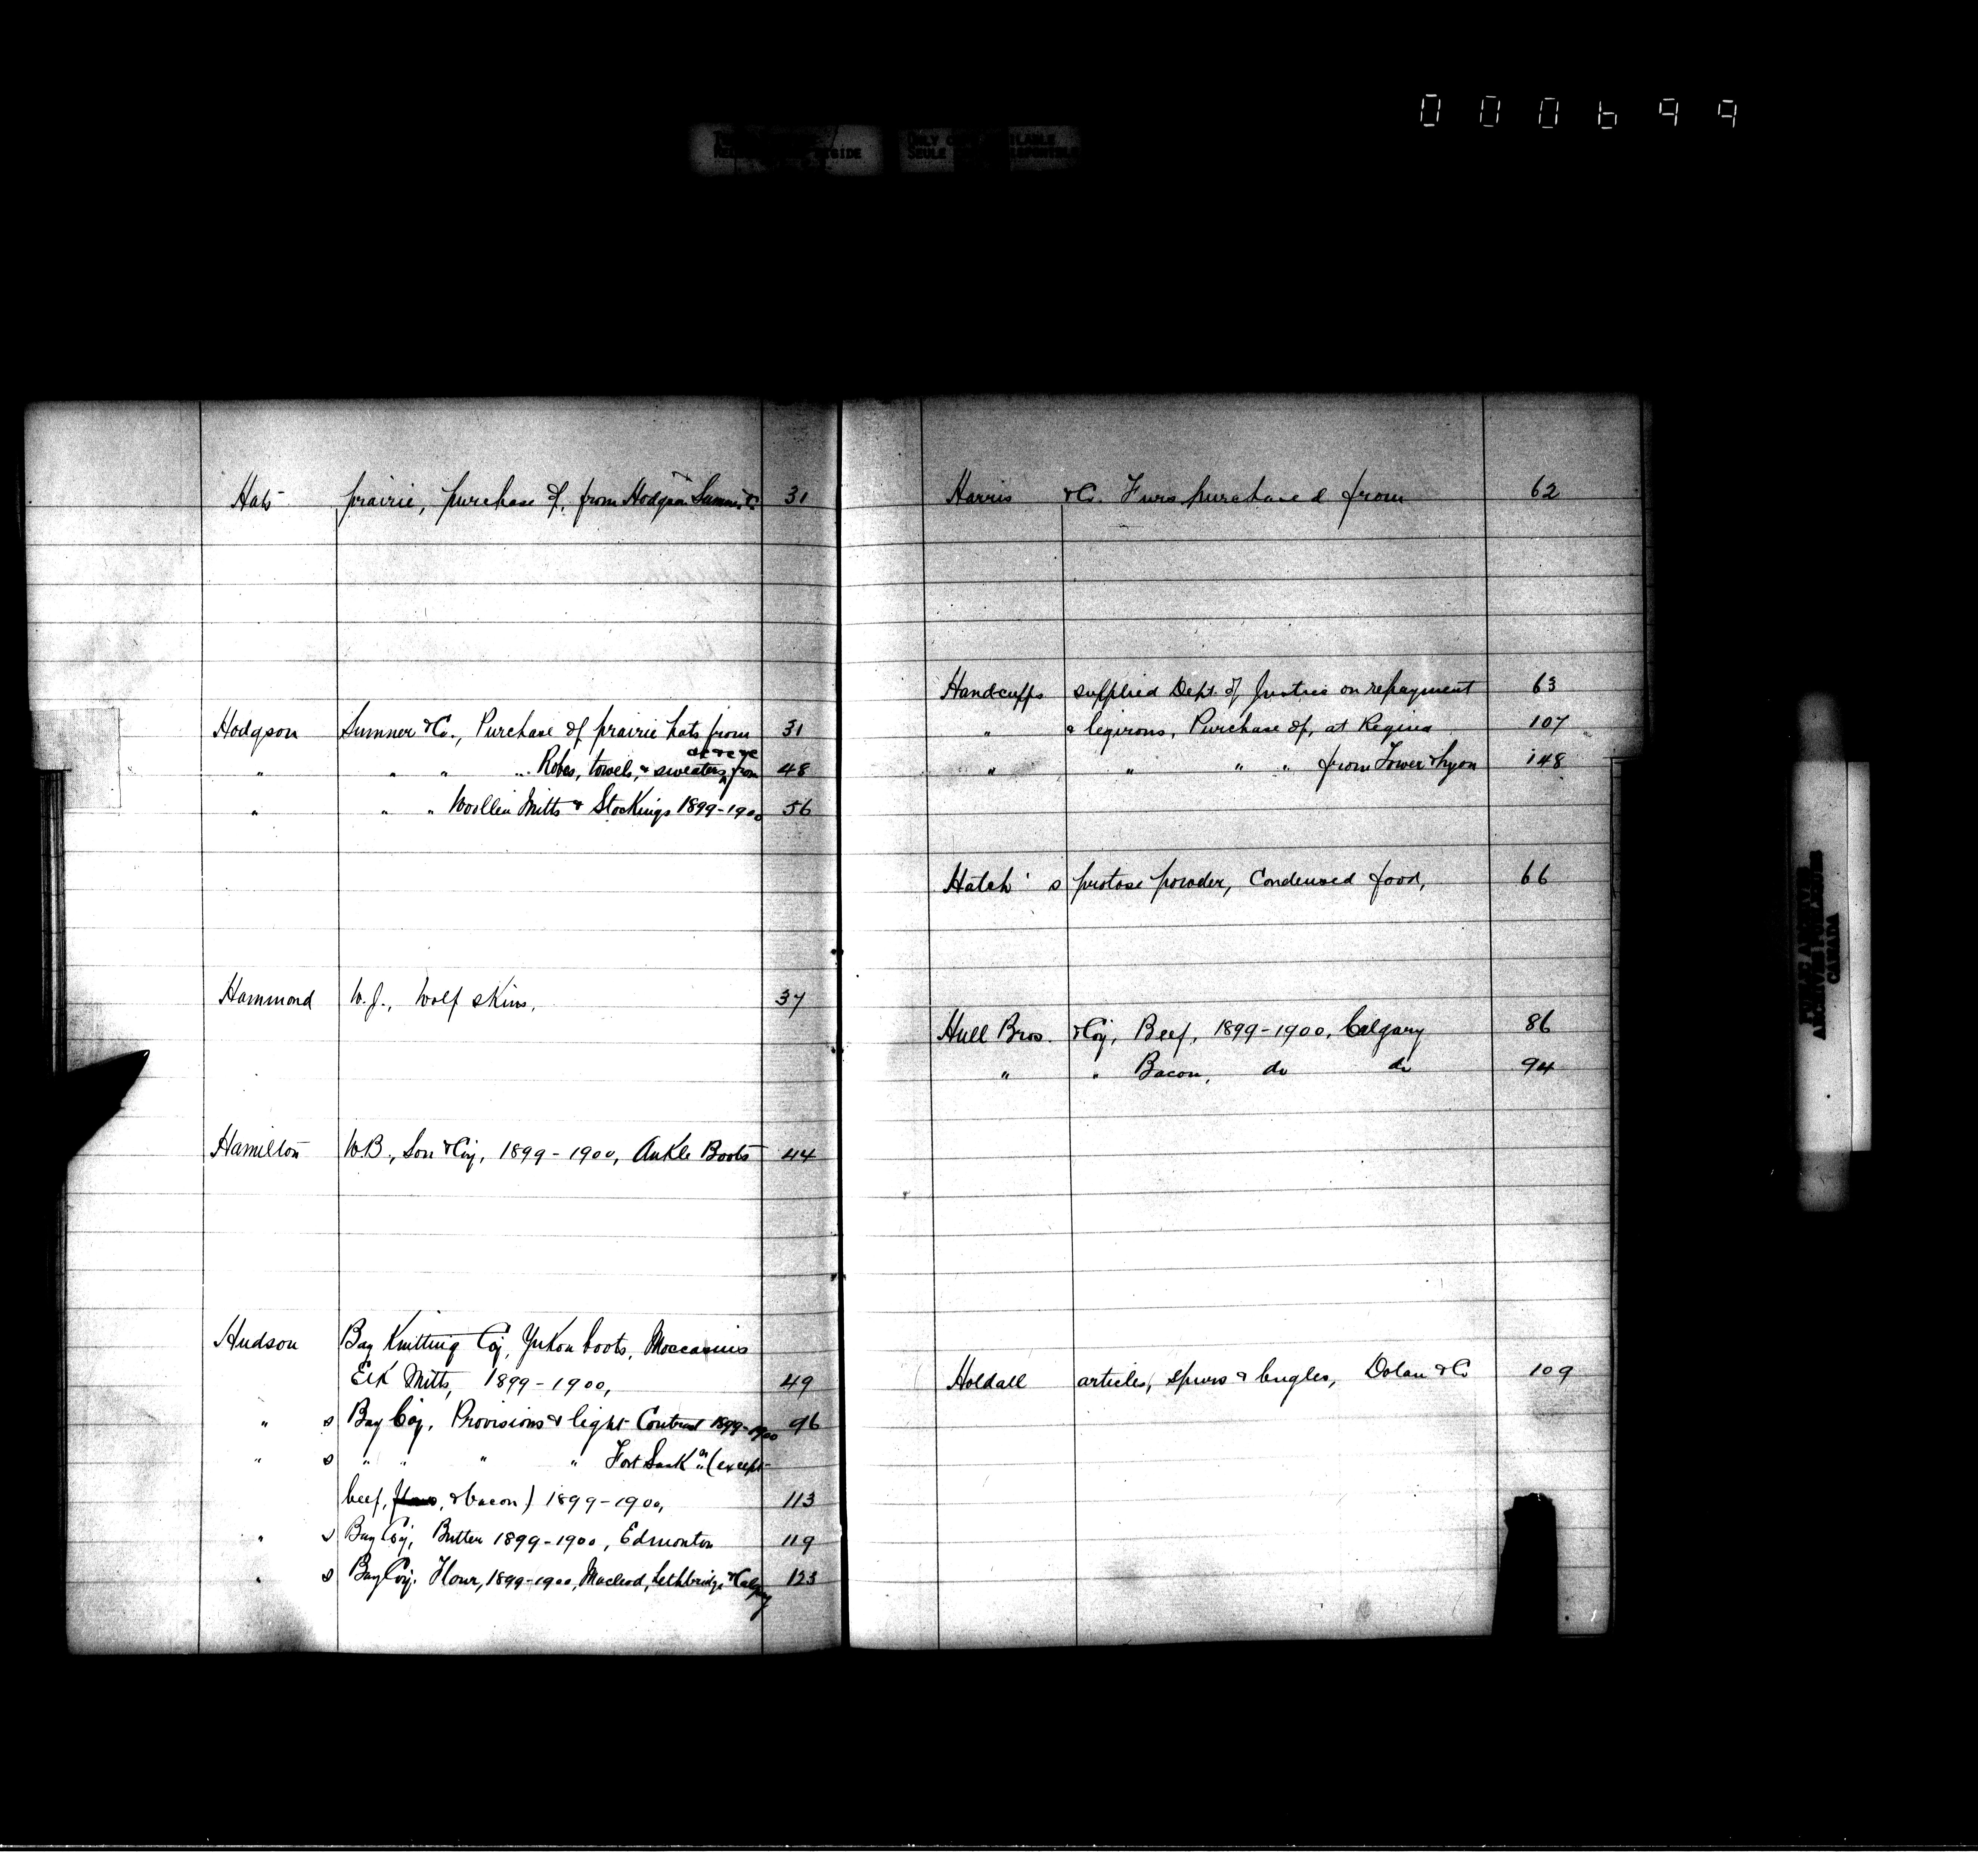 000699
ONLY COPY AVAILABLE
SEULE
Hats prairie, purchase of, from Hodgson Sumner & Co 31
Hodgson Sumner & Co., Purchase of prairie hats from 31
" " " " Robes, towels, & sweaters from 48
" " " Woollen Mitts & Stockings 1899-1900 56
Hammond W.J., Wolf skins, 37
Hamilton W.B., Son & Coy, 1899-1900, Ankle Boots 44
Hudson Bay Knitting Coy, Yukon boots, Moccasins
Elk Mitts, 1899-1900, 49
" s Bay Coy, Provisions & light Contract 1899-1900 96
" s " " " " Fort Sask'n (except
beef, flour, & bacon) 1899-1900, 113
" s Bay Coy, Butter 1899-1900, Edmonton 119
" s Bay Coy. Flour, 1899-1900, Macleod, Lethbridge & Calgary 123
Harris & Co. Furs purchased from 62
Handcuffs supplied Dept. of Justice on repayment 63
" & legirons, Purchase of, at Regina 107
" " " " from Tower & Lyon 148
Hatch's protose powder, Condensed food, 66
Hull Bros. & Coy, Beef, 1899-1900, Calgary 86
" " Bacon, do do 94
Holdall articles, spurs & bugles, Dolan & Co 109
PUBLIC ARCHIVES
ARCHIVES PUBLIQUES
CANADA